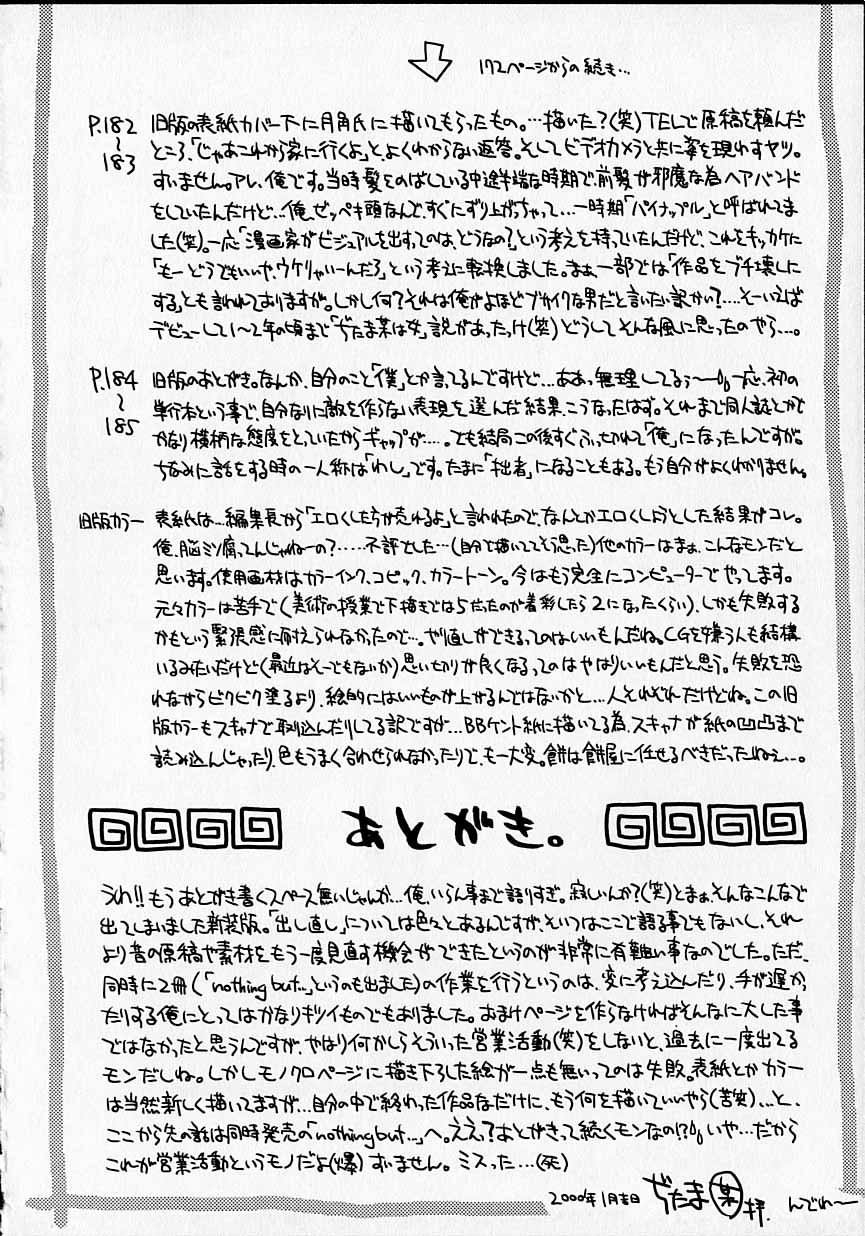 172ページからの続き…
P.182 旧版の表紙カバー下に月角氏に描いてもらったもの。…描いた?(笑)TELで原稿を頼んだ
~ ところ、「じゃあこれから家に行くよ」と、よくわからない返答。そしてビデオカメラと共に姿を現わすヤツ。
183 すいません。アレ、俺です。当時髪をのばしている中途半端な時期で前髪が邪魔な為ヘアバンド
をしていたんだけど…俺、ゼッペキ頭なんで、すぐにずり上がっちゃって…一時期「パイナップル」と呼ばれてま
した(笑)。一応「漫画家がビジュアルを出すってのは、どうなの?」という考えを持っていたんだけど、これをキッカケに
「もーどうでもいいや、ウケりゃいーんだろ」という考えに転換しました。まぁ、一部では「作品をブチ壊しに
する」とも言われておりますが。しかし何?それは俺がよほどブサイクな男だと言いたい訳かい?…。そーいえば
デビューして1~2年の頃まで「ぢたま某は女」説があったっけ(笑)どうしてそんな風に思ったのやら…。
P.184 旧版のあとがき。なんか、自分のこと「僕」とか言ってるんですけど…ああっ無理してるぅ~一応、初の
~ 単行本という事で、自分なりに敵を作らない表現を選んだ結果、こうなったはず。それまで同人誌とかで
185 かなり横柄な態度をとっていたからギャップが…。でも結局この後すぐふっきれて「俺」になったんですが。
ちなみに話をする時の一人称は「わし」です。たまに「拙者」になることもある。もう自分がよくわかりません。
旧版カラー 表紙は…編集長から「エロくした方が売れるよ」と言われたので、なんとかエロくしようとした結果がコレ。
俺、脳ミソ腐ってんじゃねーの?……不評でした…(自分で描いててそう思った)他のカラーはまぁ、こんなモンだと
思います。使用画材はカラーインク、コピック、カラートーン。今はもう完全にコンピューターでやってます。
元々カラーは苦手で(美術の授業で下描きでは5だったのが着彩したら2になったくらい)、しかも失敗する
かもという緊張感に耐えられなかったので…。やり直しができるってのはいいもんだね。CGを嫌う人も結構
いるみたいだけど(最近はそーでもないか)思い切りが良くなるってのはやはりいいもんだと思う。失敗を恐
れながらビクビク塗るより、絵的にはいいものが上がるんではないかと…人それぞれだけどね。この旧
版カラーもスキャナで取り込んだりしてる訳ですが…BBケント紙に描いてる為、スキャナが紙の凹凸まで
読み込んじゃったり、色もうまく合わせられなかったりで、モー大変。餅は餅屋に任せるべきだったねぇ…。
あとがき。
うわ!!もうあとがき書くスペース無いじゃんか…俺、いらん事まで語りすぎ。寂しいんか?(笑)とまぁ、そんなこんなで
出てしまいました新装版。「出し直し」については色々とあるんですが、そいつはここで語る事でもないし、それ
より昔の原稿や素材をもう一度見直す機会ができたというのが非常に有難い事なのでした。ただ、
同時に2冊(「nothing but…」というのも出ました)の作業を行うというのは、変に考え込んだり、手が遅かっ
たりする俺にとってはかなりキツイものでもありました。おまけページを作らなければそんなに大した事
ではなかったと思うんですが、やはり何かしらそういった営業活動(笑)をしないと、過去に一度出てる
モンだしね。しかしモノクロページに描き下ろした絵が一点も無いってのは失敗。表紙とかカラー
は当然新しく描いてますが…自分の中で終わった作品なだけに、もう何を描いていいやら(苦笑)…と、
ここから先の話は同時発売の「nothing but…」へ。ええっ?あとがきって続くモンなの!?いや…だから
これが営業活動というモノだよ(爆)すいません。ミスった…(死)
2000年1月吉日 ぢたま某拝. んでわ~